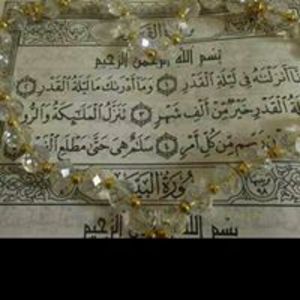 بسم الله الرحمن الرحيم
أنزلنه في ليلة القدر ١ وما أدرىك ما ليلة القدر ٢
القدر خير من ألف شهر ٣ تنزل الملىكة والرو
من كل أمر ٤ سلم هي حتى مطلع
سورة
بسم الله الرحمن الرحيم